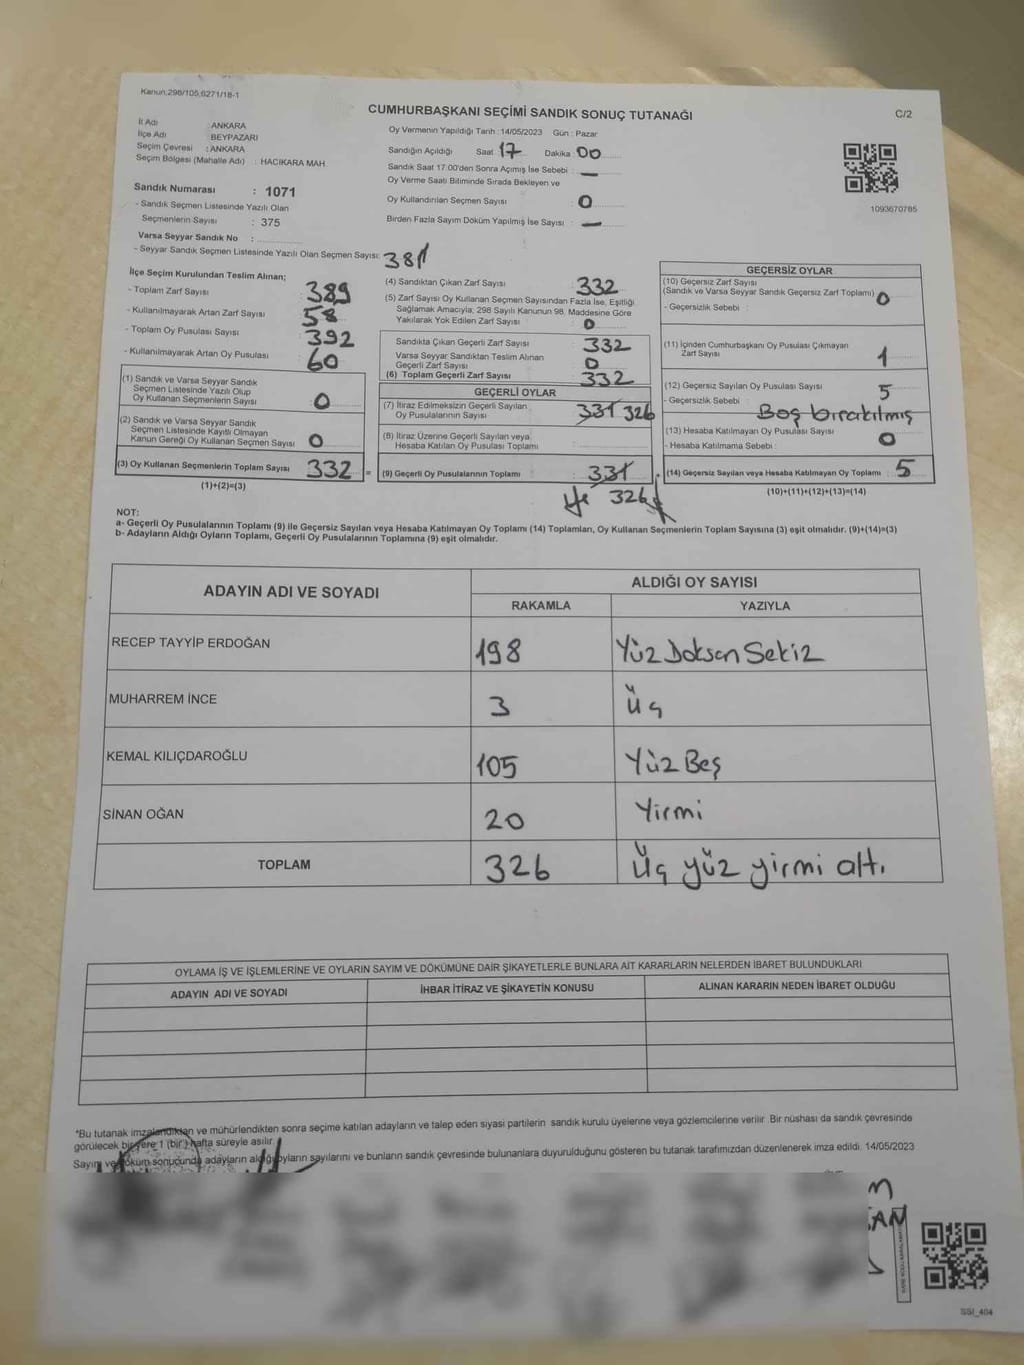 Kanun,298/105,6271/18-1
CUMHURBAŞKANI SEÇİMİ SANDIK SONUÇ TUTANAĞI
C/2
İl Adı ANKARA
İlçe Adı BEYPAZARI
Seçim Çevresi : ANKARA
Seçim Bölgesi (Mahalle Adı) : HACIKARA MAH,
Sandık Numarası : 1071
- Sandık Seçmen Listesinde Yazılı Olan
Seçmenlerin Sayısı : 375
Varsa Seyyar Sandık No :
- Seyyar Sandık Seçmen Listesinde Yazılı Olan Seçmen Sayısı:
381
Oy Vermenin Yapıldığı Tarih : 14/05/2023 Gün : Pazar
Sandığın Açıldığı Saat 17 Dakika 00
Sandık Saat 17:00'den Sonra Açımış İse Sebebi : —
Oy Verme Saati Bitiminde Sırada Bekleyen ve
Oy Kullandırılan Seçmen Sayısı : 0
Birden Fazla Sayım Döküm Yapılmış İse Sayısı : —
1093670785
İlçe Seçim Kurulundan Teslim Alınan;
- Toplam Zarf Sayısı 389
- Kullanılmayarak Artan Zarf Sayısı 58
- Toplam Oy Pusulası Sayısı 392
- Kullanılmayarak Artan Oy Pusulası 60
(1) Sandık ve Varsa Seyyar Sandık
Seçmen Listesinde Yazılı Olup
Oy Kullanan Seçmenlerin Sayısı 0
(2) Sandık ve Varsa Seyyar Sandık
Seçmen Listesinde Kayıtlı Olmayan
Kanun Gereği Oy Kullanan Seçmen Sayısı 0
(3) Oy Kullanan Seçmenlerin Toplam Sayısı 332 =
(1)+(2)=(3)
(4) Sandıktan Çıkan Zarf Sayısı : 332
(5) Zarf Sayısı Oy Kullanan Seçmen Sayısından Fazla İse, Eşitliği
Sağlamak Amacıyla; 298 Sayılı Kanunun 98. Maddesine Göre
Yakılarak Yok Edilen Zarf Sayısı : 0
Sandıkta Çıkan Geçerli Zarf Sayısı 332
Varsa Seyyar Sandıktan Teslim Alınan
Geçerli Zarf Sayısı 0
(6) Toplam Geçerli Zarf Sayısı 332
GEÇERLİ OYLAR
(7) İtiraz Edilmeksizin Geçerli Sayılan
Oy Pusulalarının Sayısı : 331 326
(8) İtiraz Üzerine Geçerli Sayılan veya
Hesaba Katılan Oy Pusulası Toplamı :
(9) Geçerli Oy Pusulalarının Toplamı : 331
326
GEÇERSİZ OYLAR
(10) Geçersiz Zarf Sayısı
(Sandık ve Varsa Seyyar Sandık Geçersiz Zarf Toplamı) 0
- Geçersizlik Sebebi :
(11) İçinden Cumhurbaşkanı Oy Pusulası Çıkmayan
Zarf Sayısı 1
(12) Geçersiz Sayılan Oy Pusulası Sayısı 5
- Geçersizlik Sebebi : Boş bırakılmış
(13) Hesaba Katılmayan Oy Pusulası Sayısı 0
- Hesaba Katılmama Sebebi :
(14) Geçersiz Sayılan veya Hesaba Katılmayan Oy Toplamı : 5
(10)+(11)+(12)+(13)=(14)
NOT:
a- Geçerli Oy Pusulalarının Toplamı (9) ile Geçersiz Sayılan veya Hesaba Katılmayan Oy Toplamı (14) Toplamları, Oy Kullanan Seçmenlerin Toplam Sayısına (3) eşit olmalıdır. (9)+(14)=(3)
b- Adayların Aldığı Oyların Toplamı, Geçerli Oy Pusulalarının Toplamına (9) eşit olmalıdır.
ADAYIN ADI VE SOYADI ALDIĞI OY SAYISI
RAKAMLA YAZIYLA
RECEP TAYYİP ERDOĞAN 198 Yüz Doksan Sekiz
MUHARREM İNCE 3 Üç
KEMAL KILIÇDAROĞLU 105 Yüz Beş
SİNAN OĞAN 20 Yirmi
TOPLAM 326 Üç yüz yirmi altı
OYLAMA İŞ VE İŞLEMLERİNE VE OYLARIN SAYIM VE DÖKÜMÜNE DAİR ŞİKAYETLERLE BUNLARA AİT KARARLARIN NELERDEN İBARET BULUNDUKLARI
ADAYIN ADI VE SOYADI İHBAR İTİRAZ VE ŞİKAYETİN KONUSU ALINAN KARARIN NEDEN İBARET OLDUĞU
*Bu tutanak imzalandıktan ve mühürlendikten sonra seçime katılan adayların ve talep eden siyasi partilerin sandık kurulu üyelerine veya gözlemcilerine verilir. Bir nüshası da sandık çevresinde
görülecek bir yere 1 (bir) hafta süreyle asılır.
Sayım ve döküm sonucunda adayların aldığı oyların sayılarını ve bunların sandık çevresinde bulunanlara duyurulduğunu gösteren bu tutanak tarafımızdan düzenlenerek imza edildi. 14/05/2023
SSI_404